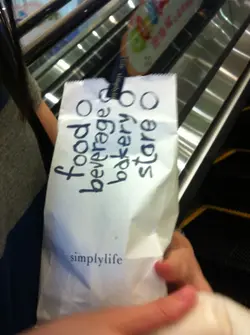 food
beverage
bakery
store
simplylife